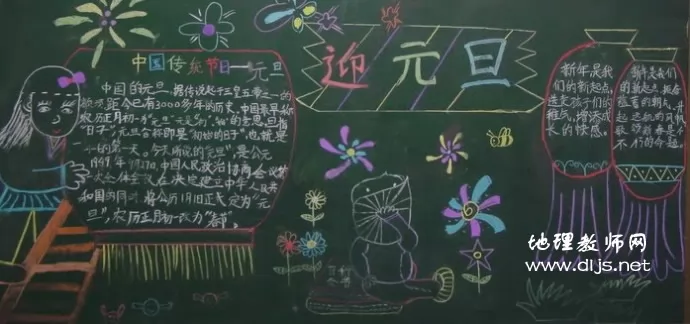 中国传统节日——元旦
中国的元旦,据传说起于三皇五帝之一的
颛顼,距今已有3000多年的历史。
农历正月初一。"元"是"始"的意思,旦指
"日子","元旦"合称即是"初始的日子",也就是
一年的第一天。今天所说的"元旦",是公元
1949年9月27日,中国人民政治协商会议第
一次全体会议,在决定建立中华人民共
和国的同时,将公历1月1日正式定为"元
旦",农历正月初一改为"春节"。
迎元旦
新年是我
们的新起点,
孩子们的
稚气,增添成
长的快感。
新年是我们
的新起点,
地理教师网
www.dljs.net